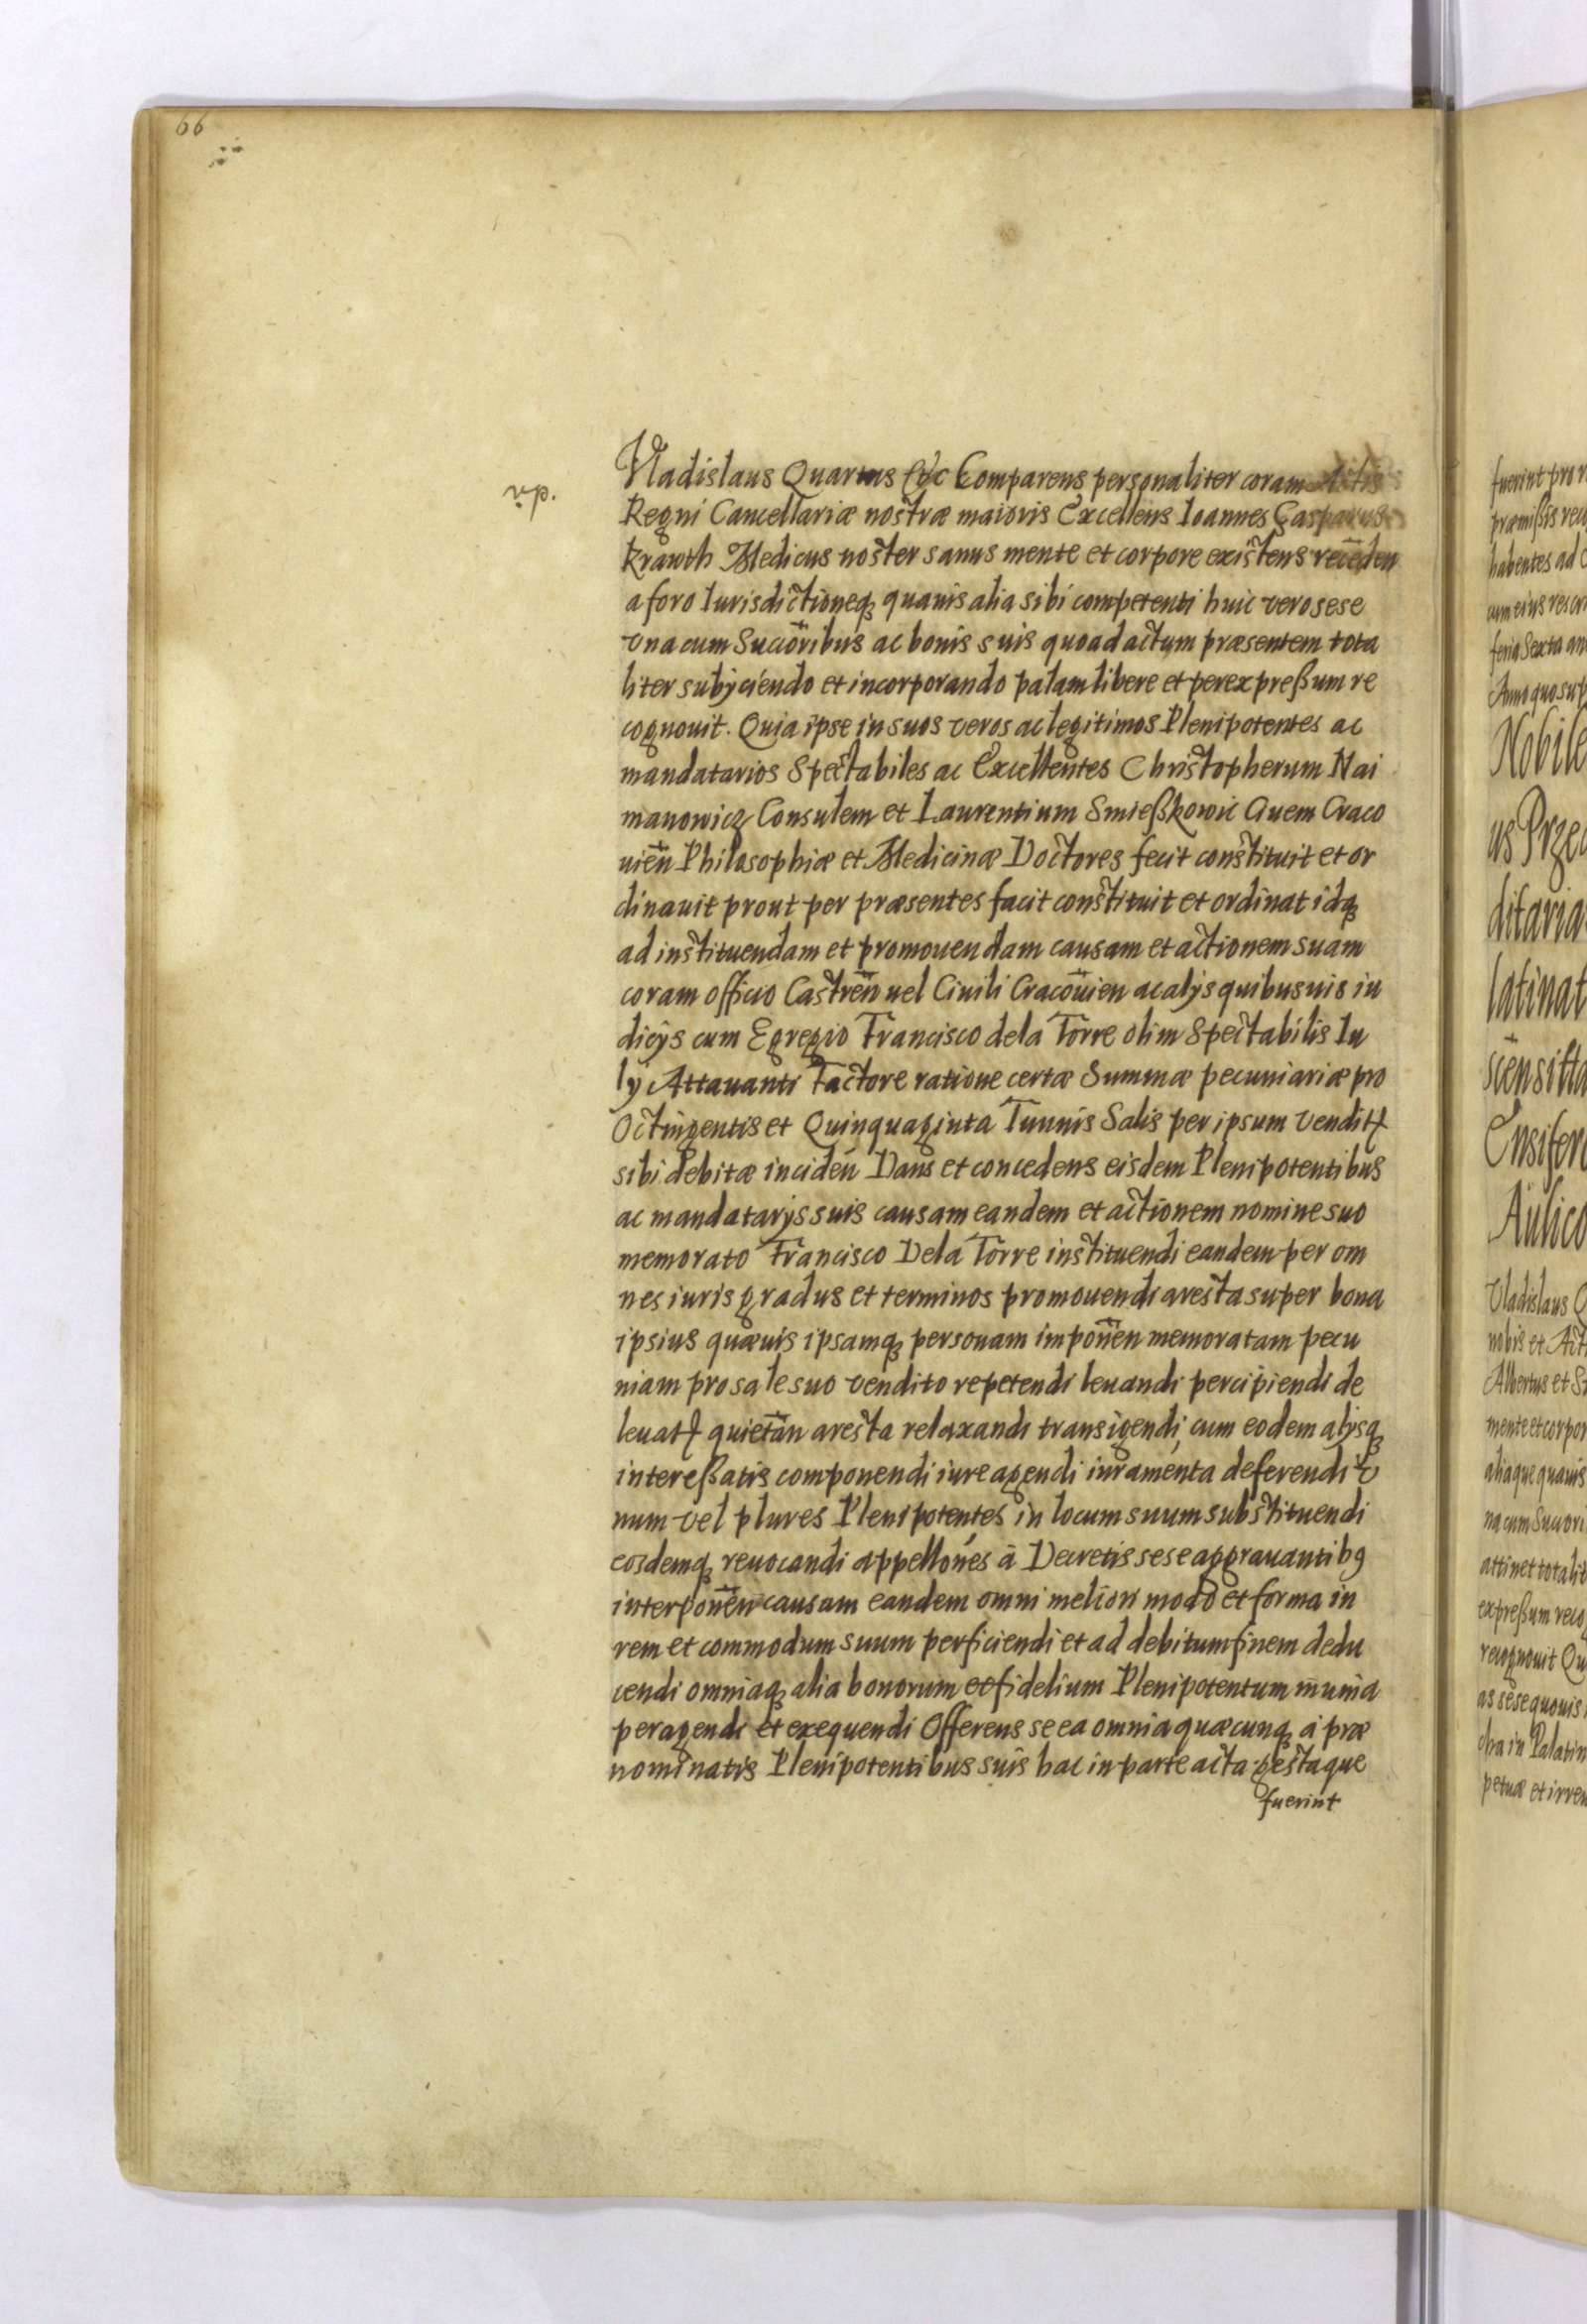 66
Vladislaus Quartus &c Comparens personaliter coram Actis
Regni Cancellariæ nostræ maioris Excellens Ioannes Gasparus
Krawth Medicus noster sanus mente et corpore existens receden
a foro Iurisdictioneq quauis alia sibi competenti huic vero sese
vna cum Succōribus ac bonis suis quoad actum præsentem tota
liter subÿciendo et incorporando palam libere et per expreßum re
cognouit. Quia ipse in suos veros ac legitimos Plenipotentes ac
mandatarios Spectabiles ac Excellentes Christopherum Nai
manowicz Consulem et Laurentium Smießkowic Ciuem Craco
uien̄ Philosophiæ et Medicinæ Doctores fecit constituit et or
dinauit prout per præsentes facit constituit et ordinat idq
ad instituendam et promouendam causam et actionem suam
coram officio Castren̄ uel Ciuili Cracouien̄ ac alÿs quibusuis iu
dicÿs cum Egregio Francisco dela Torre olim Spectabilis Iu
lÿ Attauanti Factore ratione certæ Summæ pecuniariæ pro
Octingentis et Quinquaginta Tunnis Salis per ipsum vendit
sibi debitæ inciden̄ Dans et concedens eisdem Plenipotentibus
ac mandatarÿs suis causam eandem et actionem nomine suo
memorato Francisco Dela Torre instituendi eandem per om
nes iuris gradus et terminos promouendi aresta super bona
ipsius quæuis ipsamq personam imponen̄ memoratam pecu
niam pro sale suo vendito repetendi leuandi percipiendi de
leuat quietan̄ aresta relaxandi transigendi, cum eodem alÿsq
intereßatis componendi iure agendi iuramenta deferendi v
num vel plures Plenipotentes in locum suum substituendi
eosdemq reuocandi appellōnes á Decretis sese aggrauantib9
interponen̄ causam eandem omni meliori modo et forma in
rem et commodum suum perficiendi et ad debitum finem dedu
cendi omniaq alia bonorum et fidelium Plenipotentum munia
peragendi et exequendi Offerens se ea omnia quæcunq á præ
nominatis Plenipotentibus suis hac in parte acta gestaque
fuerint
fuerint pro r
præmißis reco
habentes ad
feria Sexta an
Anno quo sup
Nobile
us Prze
ditaria
latinat
Ensifer
Aulico
Vladislaus Q
nobis et Act
Albertus et St
mente et corpor
aliaque quauis
na cum Succori
attinet totalit
expreßum reco
recognouit Qu
as sese quouis
cha in Palatin
petuæ et irreu